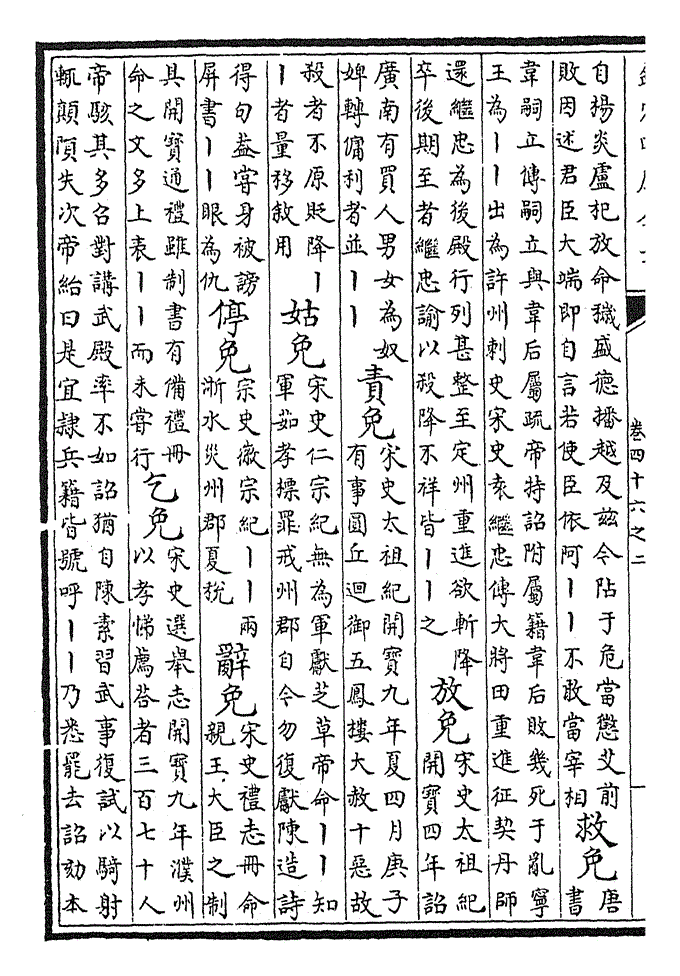 卷四十六之二
自楊炎盧杞放命穢盛德播越及茲今阽于危當懲艾前
敗因述君臣大端即自言若使臣依阿丨丨不敢當宰相
救免
唐
書
韋嗣立傳嗣立與韋后屬疏帝特詔附屬籍韋后敗幾死于亂寧
王為丨丨出為許州刺史宋史袁繼忠傳大將田重進征契丹師
還繼忠為後殿行列甚整至定州重進欲斬降
卒後期至者繼忠諭以殺降不祥皆丨丨之
放免
宋史太祖紀
開寶四年詔
廣南有買人男女為奴
婢轉傭利者並丨丨
責免
宋史太祖紀開寶九年夏四月庚子
有事圓丘迴御五鳳樓大赦十惡故
殺者不原貶降丨
丨者量移敘用
姑免
宋史仁宗紀無為軍獻芝草帝命丨丨知
軍茹孝標罪戒州郡自今勿復獻陳造詩
得句益甯身被謗
屏書丨丨眼為仇
停免
宋史徽宗紀丨丨兩
浙水災州郡夏稅
辭免
宋史禮志冊命
親王大臣之制
具開寶通禮雖制書有備禮冊
命之文多上表丨丨而未嘗行
乞免
宋史選舉志開寶九年濮州
以孝悌薦名者三百七十人
帝駭其多召對講武殿率不如詔猶自陳素習武事復試以騎射
輒顛隕失次帝紿曰是宜隸兵籍皆號呼丨丨乃悉罷去詔劾本